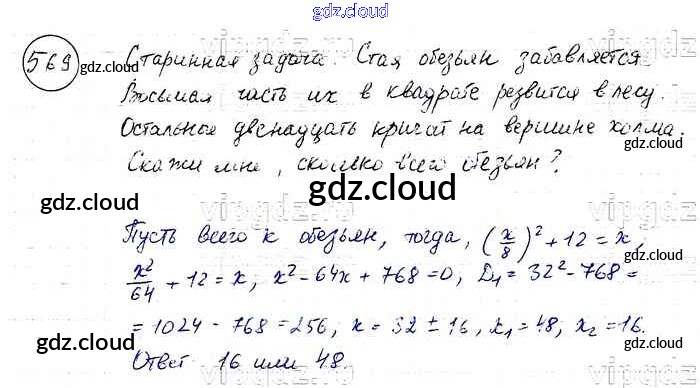 gdz.cloud
569 Старинная задача. Стая обезьян забавляется.
gdz.cloud
Восьмая часть их в квадрате резвится в лесу.
Остальные двенадцать кричат на вершине холма.
Скажи мне, сколько всего обезьян?
gdz.cloud
gdz.cloud
gdz.cloud
Пусть всего x обезьян, тогда, (x/8)² + 12 = x,
x²/64 + 12 = x; x² - 64x + 768 = 0, D₁ = 32² - 768 =
gdz.cloud
= 1024 - 768 = 256, x = 32 ± 16, x₁ = 48; x₂ = 16.
gdz.cloud
gdz.cloud
Ответ 16 или 48.